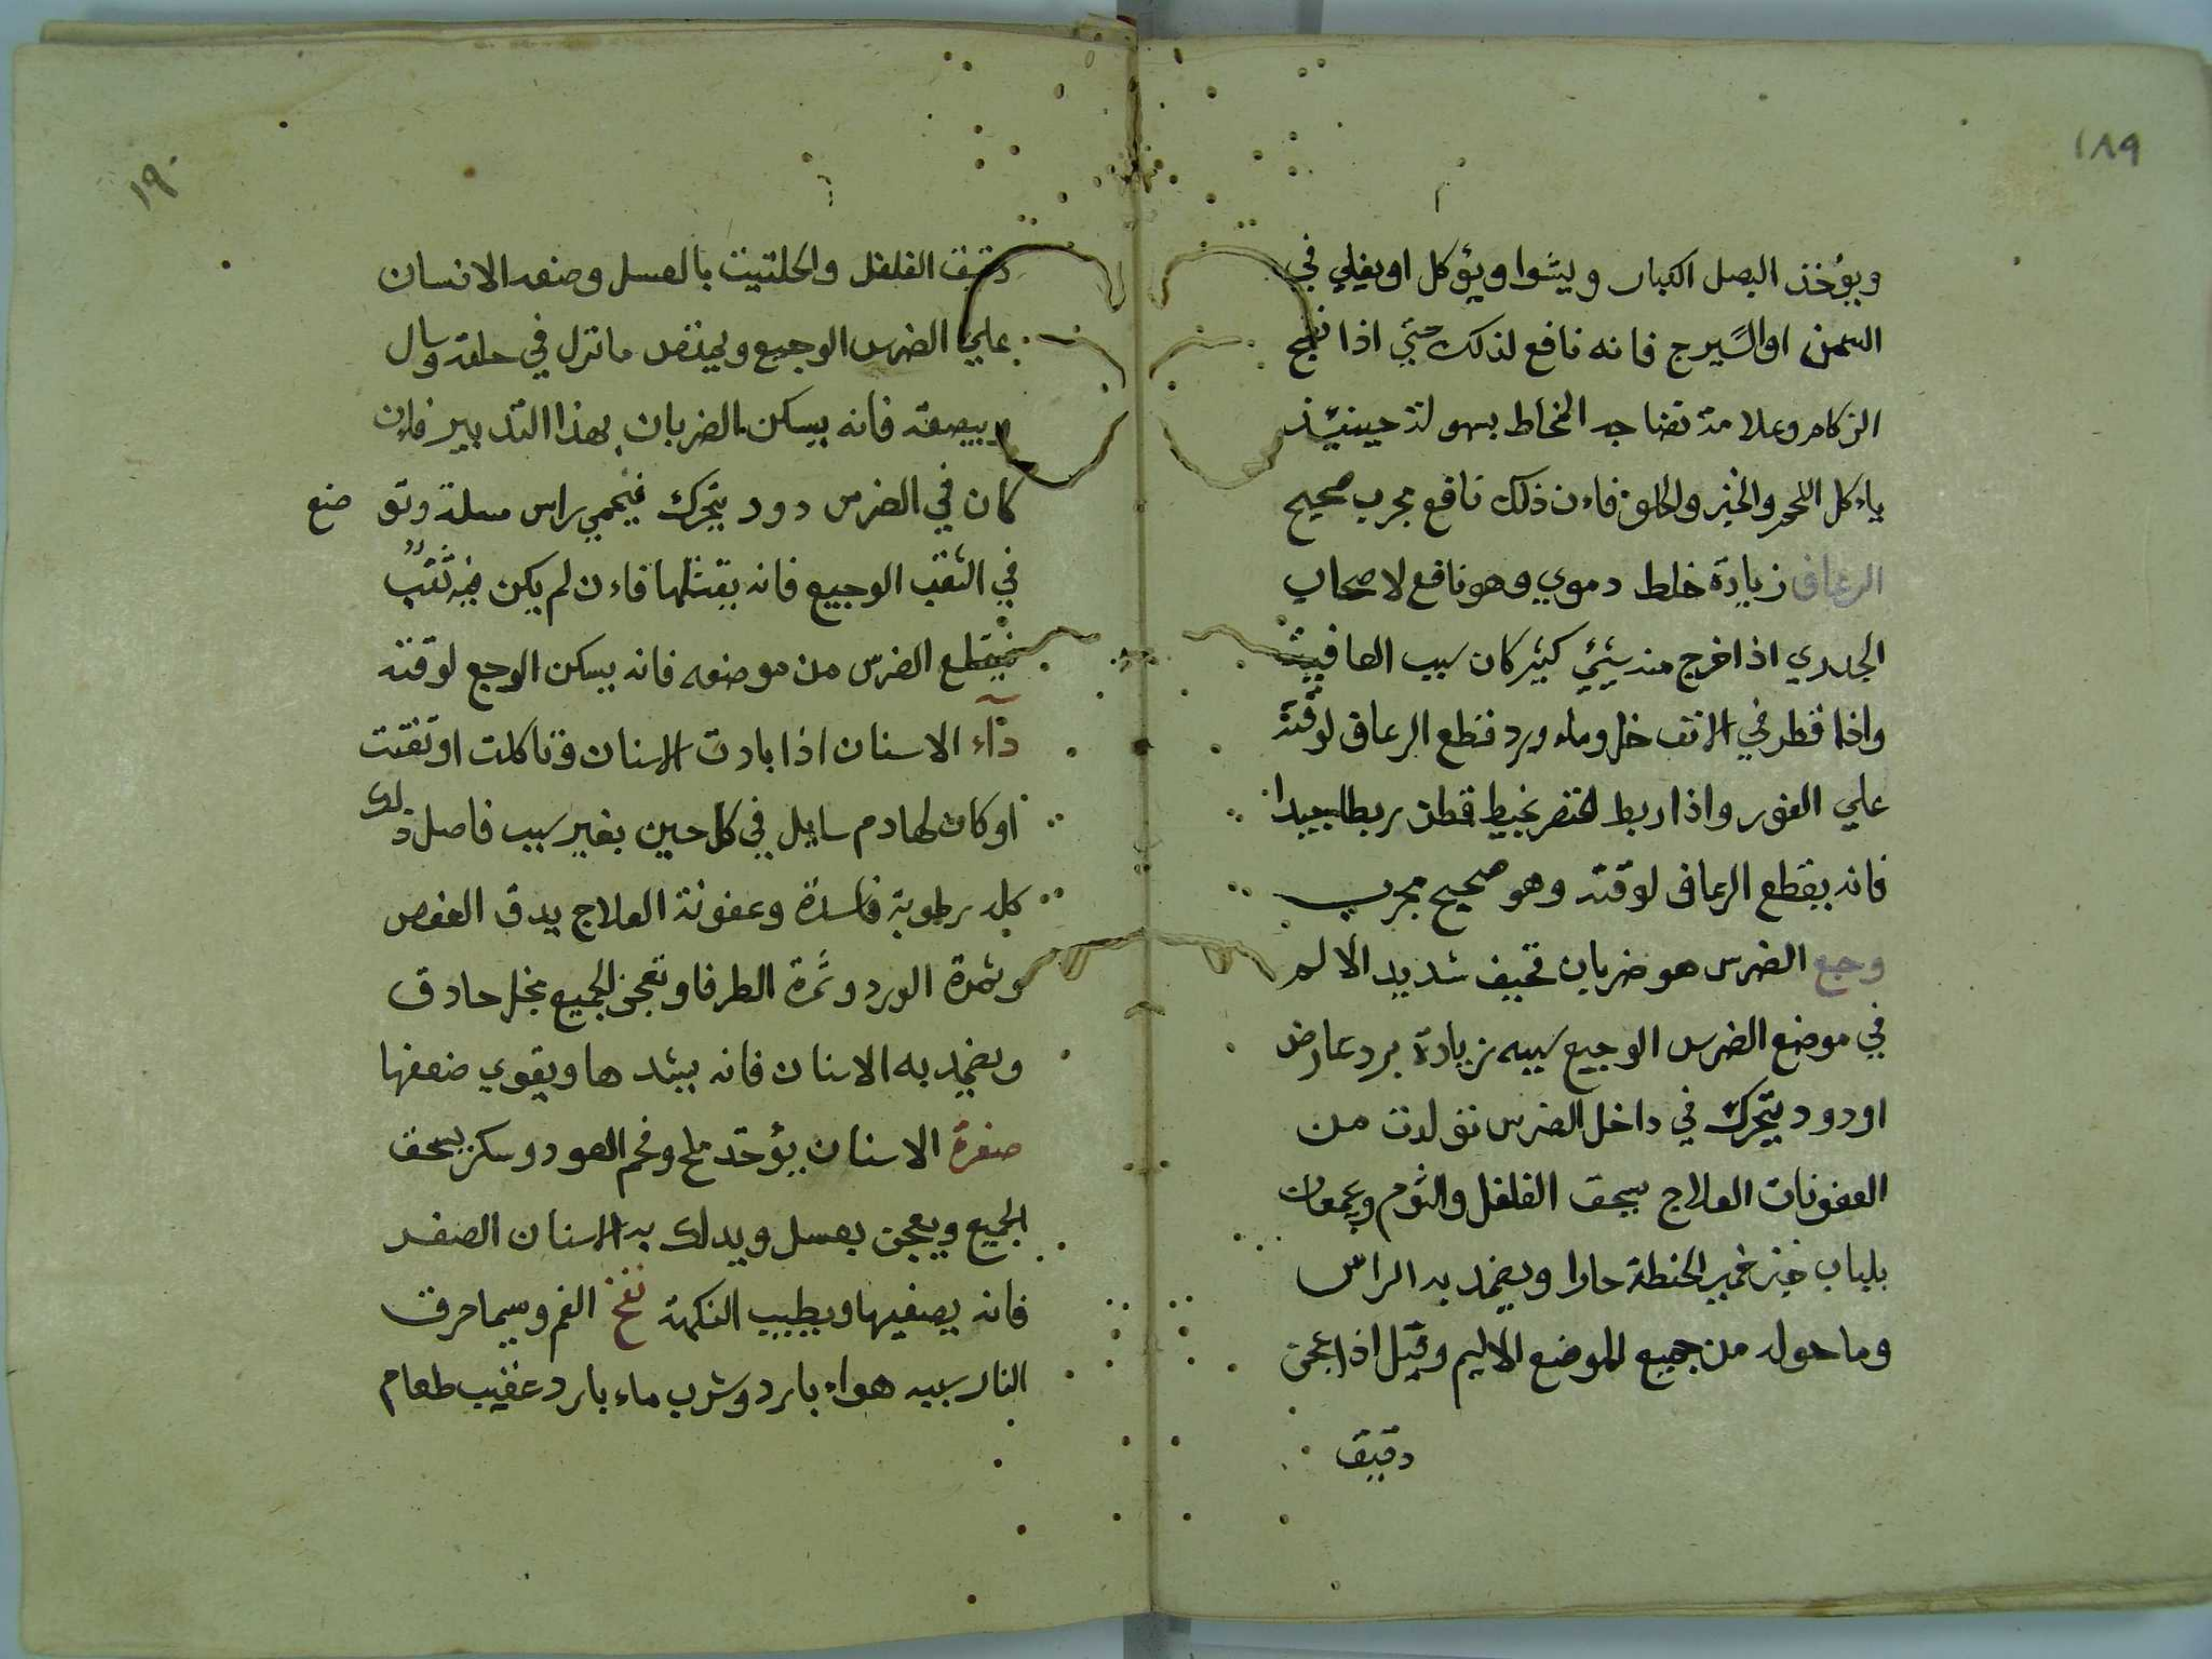 ١٨٩
ويؤخذ البصل الكبار ويشوا ويؤكل او يغلي في
السمن او السيرج فانه نافع لذلك حتي اذا نضج
الزكام وعلامة نضاجه المخاط بسهولة حينيئذ
ياءكل اللحم والخبز والحلوة فاءن ذلك نافع مجرب صحيح
الرعاف زيادة خلط دموي وهو نافع لاصحاب
الجدري اذا خرج منه شيئ كثير كان سبب العافية
واذا قطر في الانف خل وماء ورد قطع الرعاف لوقته
علي الفور واذا ربط الخنصر بخيط قطن ربطا جيدا
فانه يقطع الرعاف لوقته وهو صحيح مجرب
وجع الضرس هو ضربان شديد الالم
في موضع الضرس الوجيع سببه زيادة برد عارض
او دود يتحرك في داخل الضرس تولدت من
العفونات العلاج يسحق الفلفل والثوم ويجمعان
بلباب خبز خمير الحنطة حارا ويضمد به الراس
وما حوله من جميع الموضع الاليم وقيل اذا عجن
دقيق
١٩٠
دقيق الفلفل والحلتيت بالعسل وضعه الانسان
علي الضرس الوجيع ما نزل في حلقه وسال
ويبصقه فانه يسكن الضربان بهذا التدبير فاءن
كان في الضرس دود يتحرك فيحمي راس مسلة وتوضع
في الثقب الوجيع فانه يقتلها فاءن لم يكن فيه ثقب
فيقطع الضرس من موضعه فانه يسكن الوجع لوقته
دآء الاسنان اذا بادت الاسنان وتاكلت او تفتت
او كان لها دم سايل في كل حين بغير سبب فاصل ذلك
كله رطوبة فاسدة وعفونة العلاج يدق العفص
وثمرة الورد وثمرة الطرفا وتعجن الجميع بخل حادق
ويضمد به الاسنان فانه يشدها ويقوي ضعفها
صفرة الاسنان يؤخذ ملح وفحم العود وسكر يسحق
الجميع ويعجن بعسل ويدلك به الاسنان الصفر
فانه يصفيها ويطيب النكهة نفخ الفم ويسما حرق
النار سببه هواء بارد وشرب ماء بارد عقيب طعام